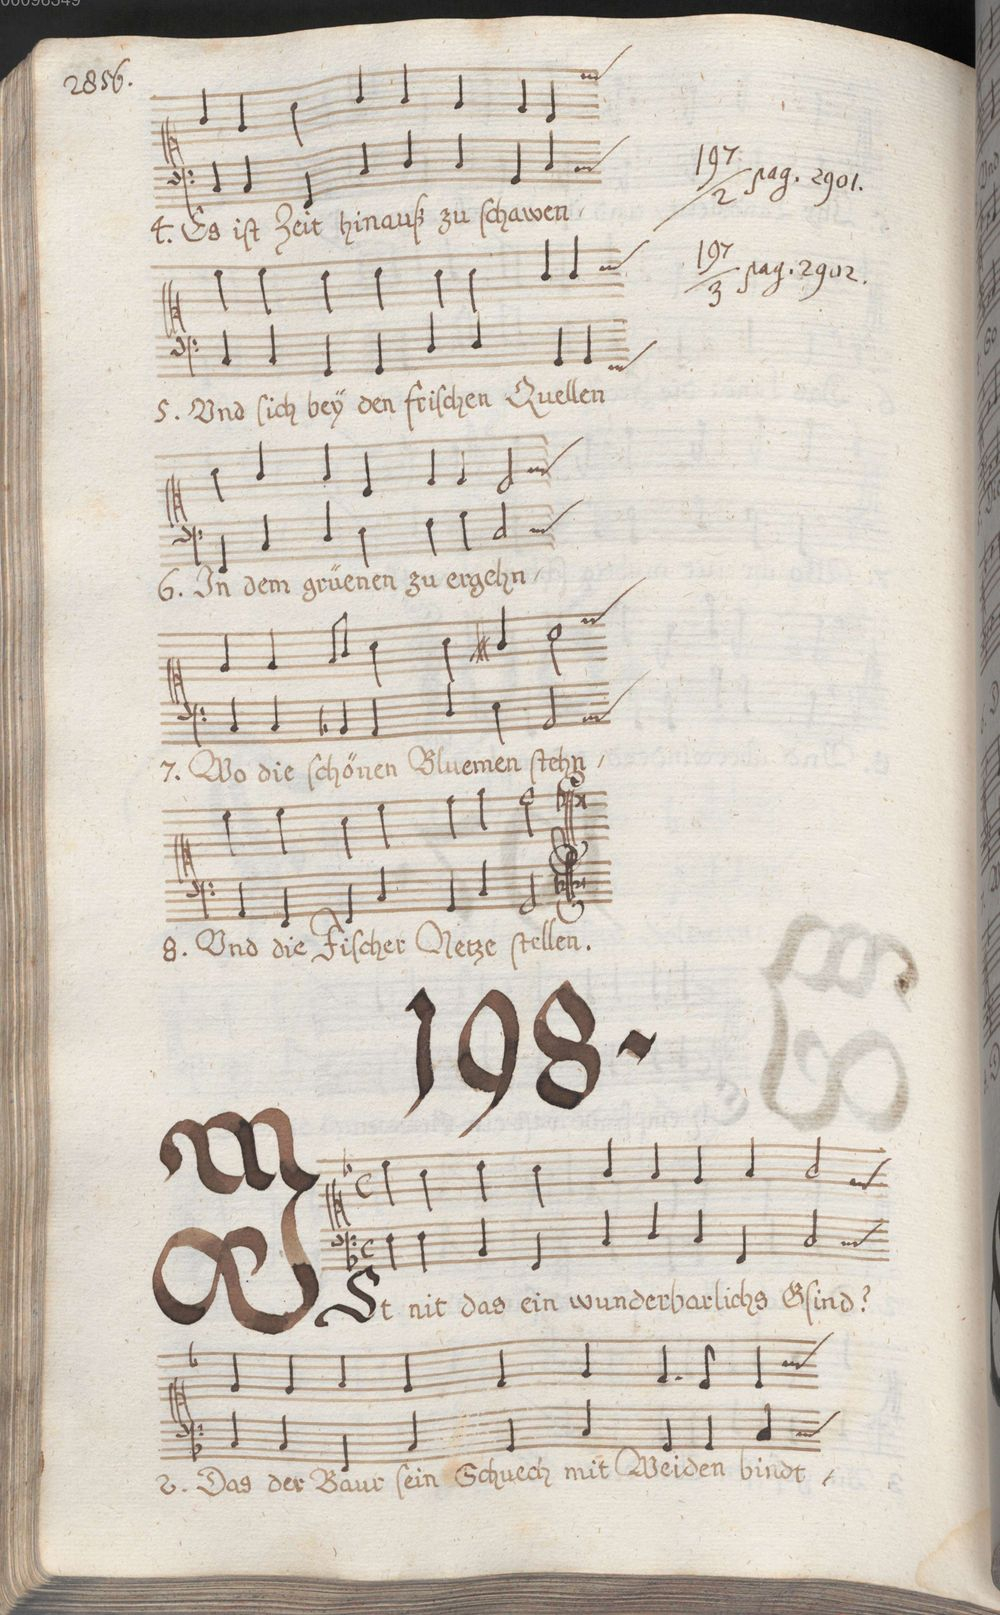 2856.
197/2 pag. 2901.
4. Es ist Zeit hinauß zu schawen
197/3 pag. 2902.
5. Vnd sich beÿ den frischen Quellen
6. In dem grüenen zu ergehn /
7. Wo die schönen Bluemen stehn /
8. Vnd die Fischer Netze stellen.
198.
ISt nit das ein wunderbarlichs Gsind?
2. Das der Baur sein Schuech mit Weiden bindt /